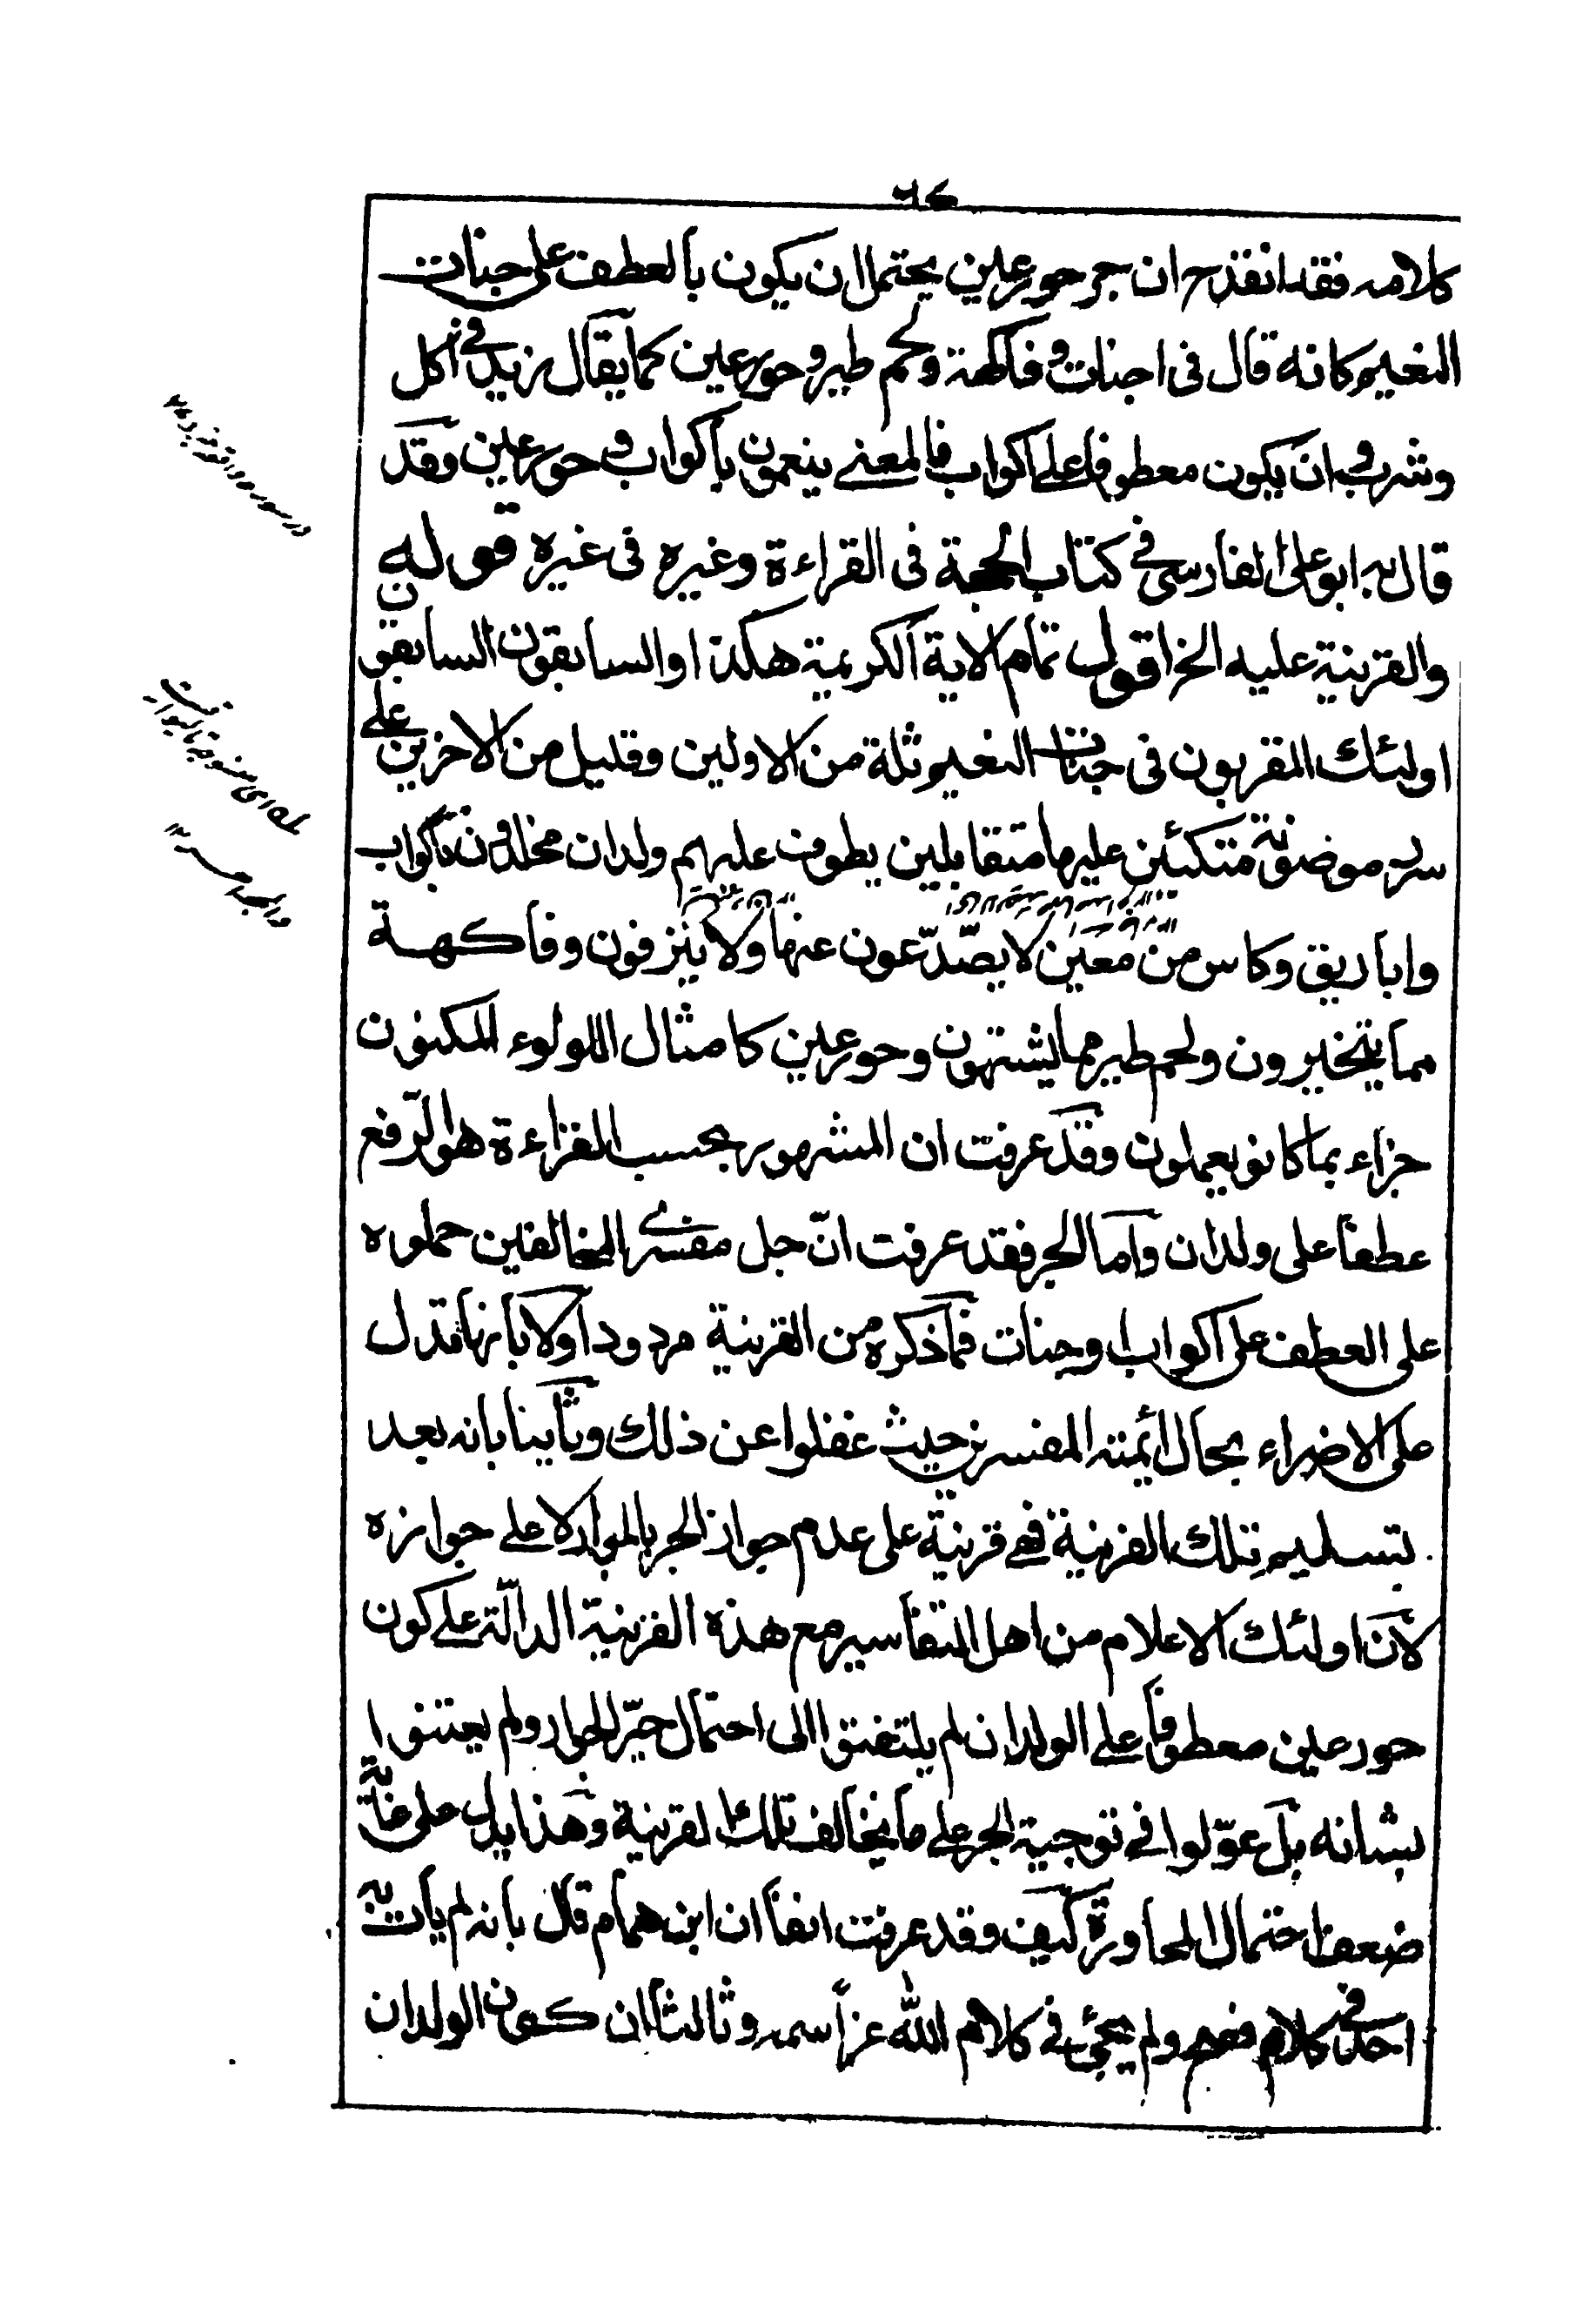 ٦٤
كلامه فقد انقدح ان جر حور عين يحتمل ان يكون بالعطف على جنات
النعيم كانه قال فى اجنات وفاكهة ولحم طير وحور عين كما يقال زيد فى اكل
وشرب وان يكون معطوفا على اكواب فالمعنے ينعمون باكواب وحور عين وقد
قال به ابو على الفارسى فى كتاب الحجة فى القراءة وغيره فى غيره قوله
والقرينية عليه الخ اقول تمام الاية الكريمة هكذا والسابقون السابقون
اولئك المقربون فى جنات النعيم ثلة من الاولين وقليل من الاخرين على
سرر موضونة متكئين عليها متقابلين يطوف عليهم ولدان مخلدون باكواب
واباريق وكاس من معين لا يصدّعون عنها ولا ينزفون وفاكهة
مما يتخيرون ولحم طير مما يشتهون وحور عين كامثال اللولوء المكنون
جزاء بما كانو يعملون وقد عرفت ان المشهور بحسب القراءة هو الرّفع
عطفا على ولدان واما الجر فقد عرفت انّ جل مفسرے المخالفين حملوه
على العطف على اكواب او جنات فما ذكره من القرينية مردود اولا بانها تدل
على الاضراء بحال ائمته المفسرين حيث غفلوا عن ذلك وثانيا بانه بعد
تسليم تلك القرينية فهے قرينية على عدم جواز الجر بالجوار لا علے جوازه
لان اولئك الاعلام من اهل التفاسير مع هذه القرينية الدالّة علے كون
حور عين معطوفا علے الولدان لم يلتفتوا الى احتمال جرّ الجوار ولم يعتنوا
بشانه بل عوّلوا فے توجيه الجر علے ما يخالف تلك القرينية وهذا يدل على غاية
ضعف احتمال المجاورة كيف وقد عرفت انفا ان ابن همام قال بانه لم يات به
احد فى كلام فصيح ولم يجئ فى كلام الله عز اسمه وثالثا ان كون الولدان